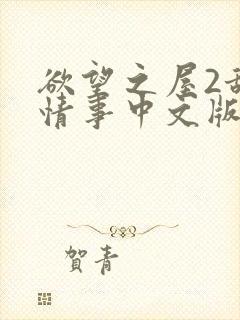 欲望之屋2
情事中文版
賀青